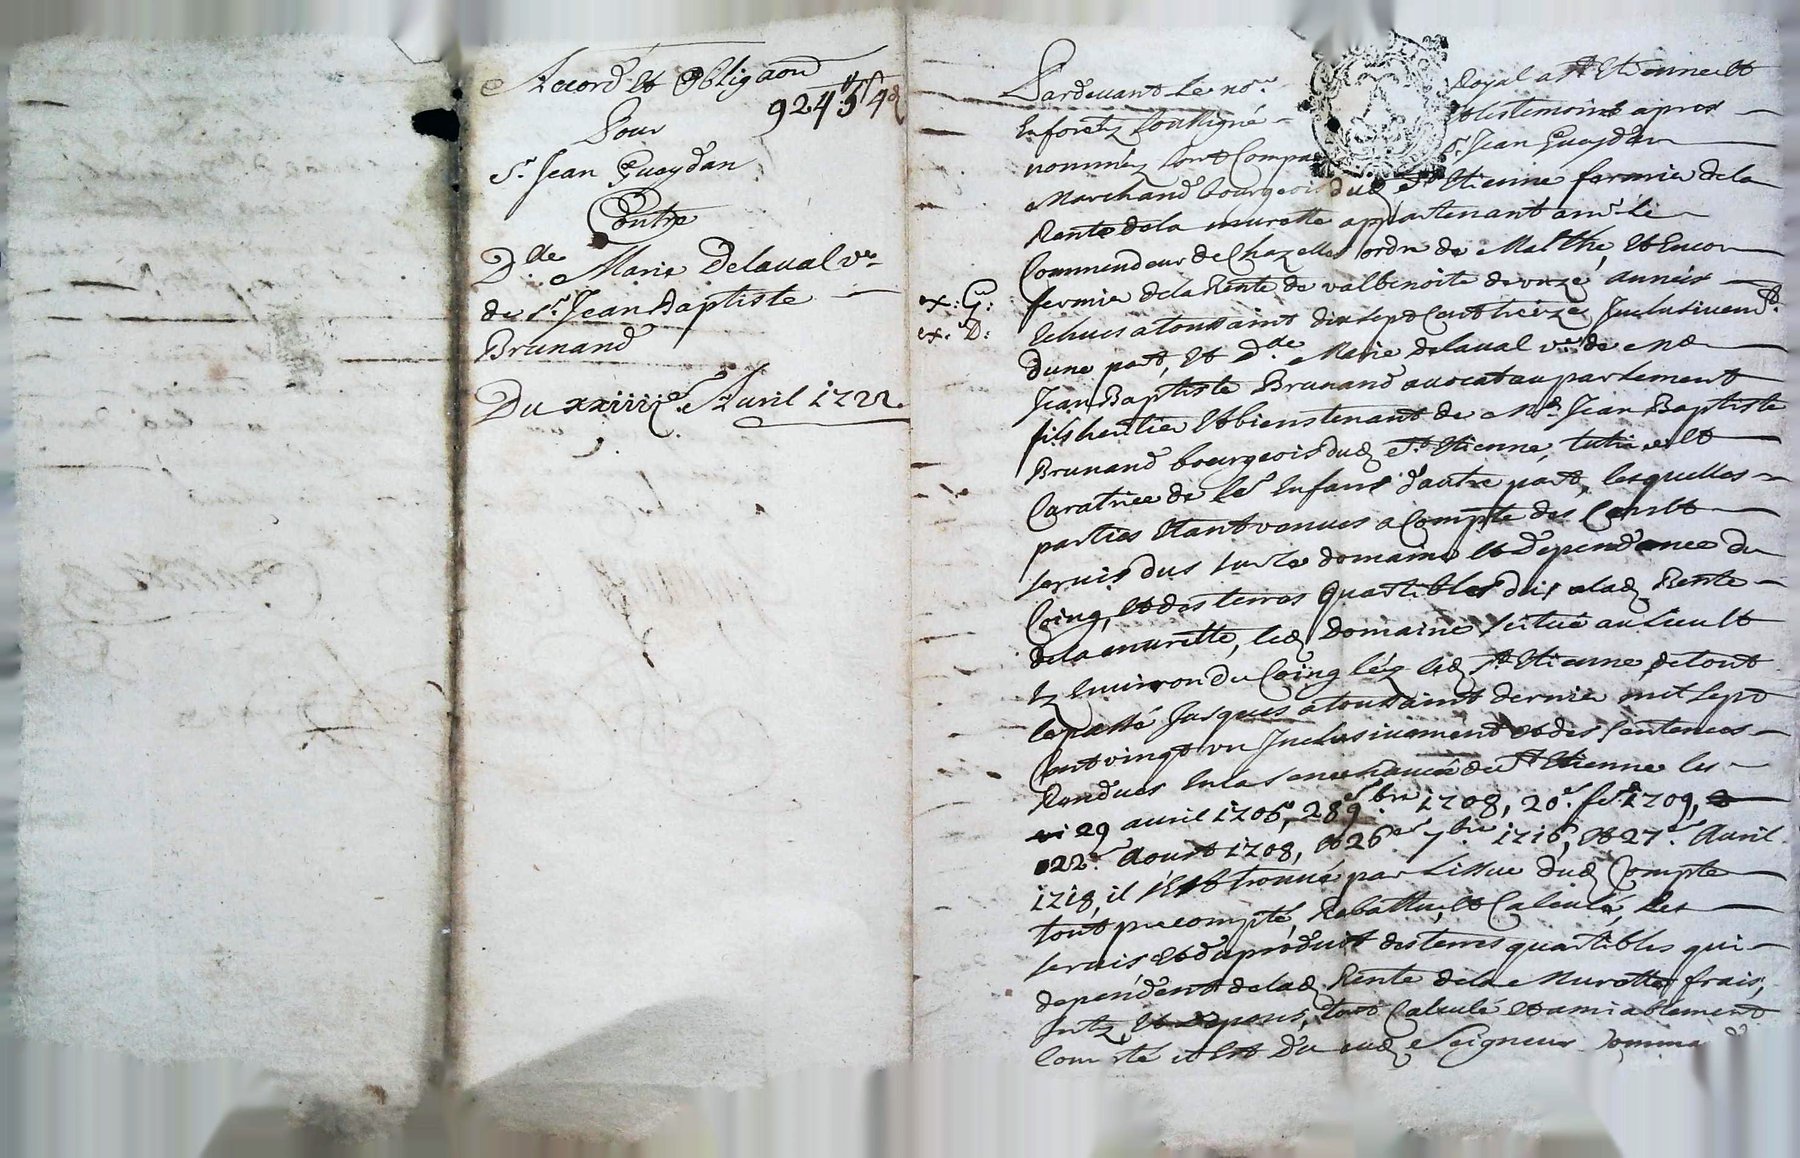 Accord et obligaon
924 # 5 s 4 d
Pour
Sr. Jean Gueydan
Contre
Dlle. Marie Delaual ve
de Sr. Jean Baptiste
Brunand
Du xxiiiie. Auril 1722.
Pardeuant le nore. Royal a St Etienne et
En foretz soussigné et les temoins apres
nommés sont Compa Sr. Jean Gueydan
Marchand bourgeois dud St Etienne fermier de la
Rente de la murette appartenant a mr. le
Commendeur de Chazelles ordre de Malthe, et Encor
ex. G: fermier de la Rente de valbenoite de onze années
ex. D: Echues a toussaint dix sept cent treize Inclusiuemt.
dune part, et Dlle. Marie delaual ve de Me
Jean Baptiste Brunand auocat au parlement
fils heritier et bienstenant de Me. Jean Baptiste
Brunand bourgeois dud St Etienne, tutrice et
Curatrice de ses Enfans d'autre part, lesquelles
parties Etant venues a Compte des Cens et
seruis dus sur le domaine et dependence du
Coing, et des terres quartibles dus a lad Rente
de la murette, led Domaine scitué au lieu et
Ez Enuiron du Coing léz led St Etienne, de tout
le passé Jusques a toussaint dernier mil sept
Cent vingt vn Inclusiuement et des sentences
Rendues En la senechaucée de St Etienne les
29 auril 1706, 28e. 9bre 1708, 20e. fer. 1709,
22e. Aoust 1708, et 26e 7bre 1716, et 27e. Auril
1718, il s'Est trouué par L'issue dud Compte
tout precompté, Rabattu, et Calculé, les
seruis et du produit des terres quartibles qui
dependent de lad Rente de la Murette, frais,
Intz et depens, tout Calculé et amiablement
Compté il Est Du aud Seigneur Comma